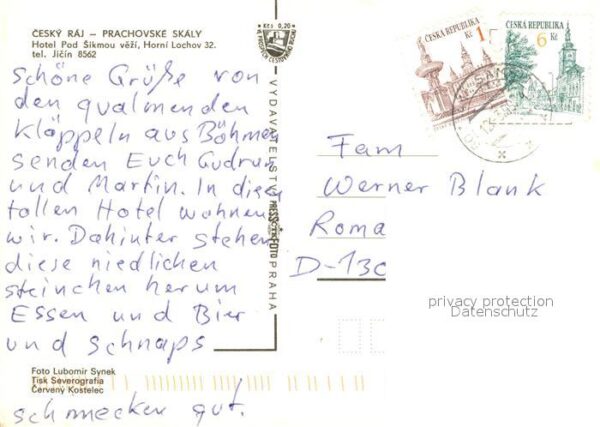 ČESKÝ RÁJ – PRACHOVSKÉ SKÁLY
Hotel Pod Šikmou věží, Horní Lochov 32.
tel. Jičín 8562
Schöne Grüße von
den qualmenden
Kläppeln aus Böhmen
senden Euch Gudrun
und Martin. In diesem
tollen Hotel wohnen
wir. Dahinter stehen
diese niedlichen
steinchen herum
Essen und Bier
und Schnaps
schmecken gut.
Foto Lubomír Synek
Tisk Severografia
Červený Kostelec
Kčs 0,20
VYDAVATELSTVÍ PRESSFOTO PRAHA
ČESKÁ REPUBLIKA
1 Kč
ČESKÁ REPUBLIKA
6 Kč
Fam
Werner Blank
Roma
D-130
privacy protection
Datenschutz